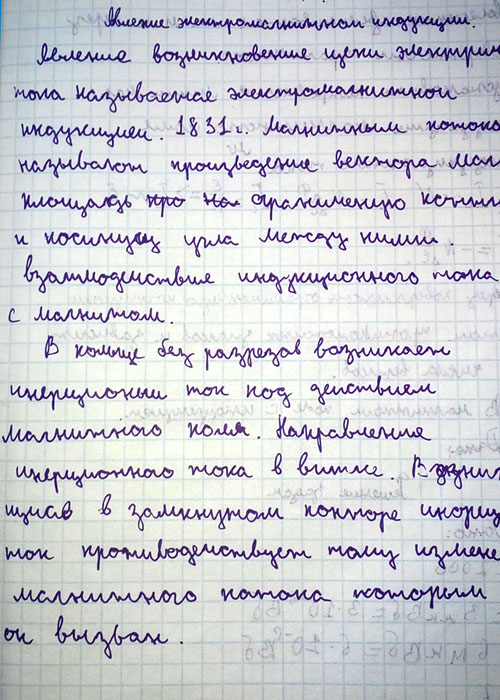 Явление электромагнитной индукции.
Явление возникновение цепи электрич
тока называется электромагнитной
индукцией. 1831 г. Магнитным потоко
называют произведение вектора маг
площадь про на огранименую конт
и косинус угла между ними.
взаимодействие индукционного тока
с магнитом.
В кольце без разрезав возникает
инерционый ток под действием
магнитного поля. Направление
инерционного тока в витке.
в замкнутом конторе
ток противодействует тому измене
магнитного патока которым
он вызван.